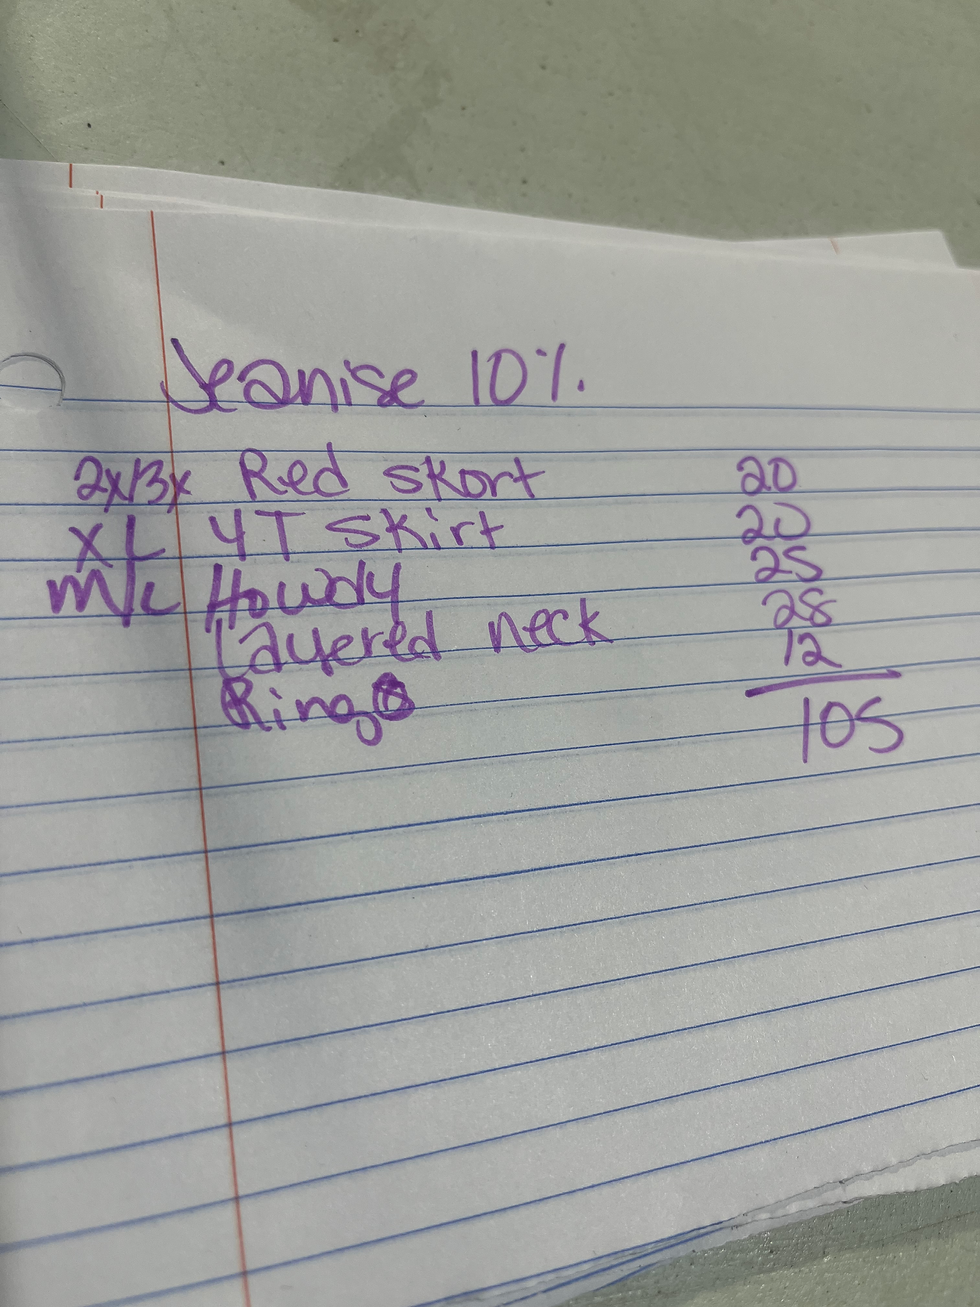 Jeanise 10%.
2x/3x Red skort 20
XL 4T skirt 20
M/L Howdy 25
Layered neck 28
Ring 12
105